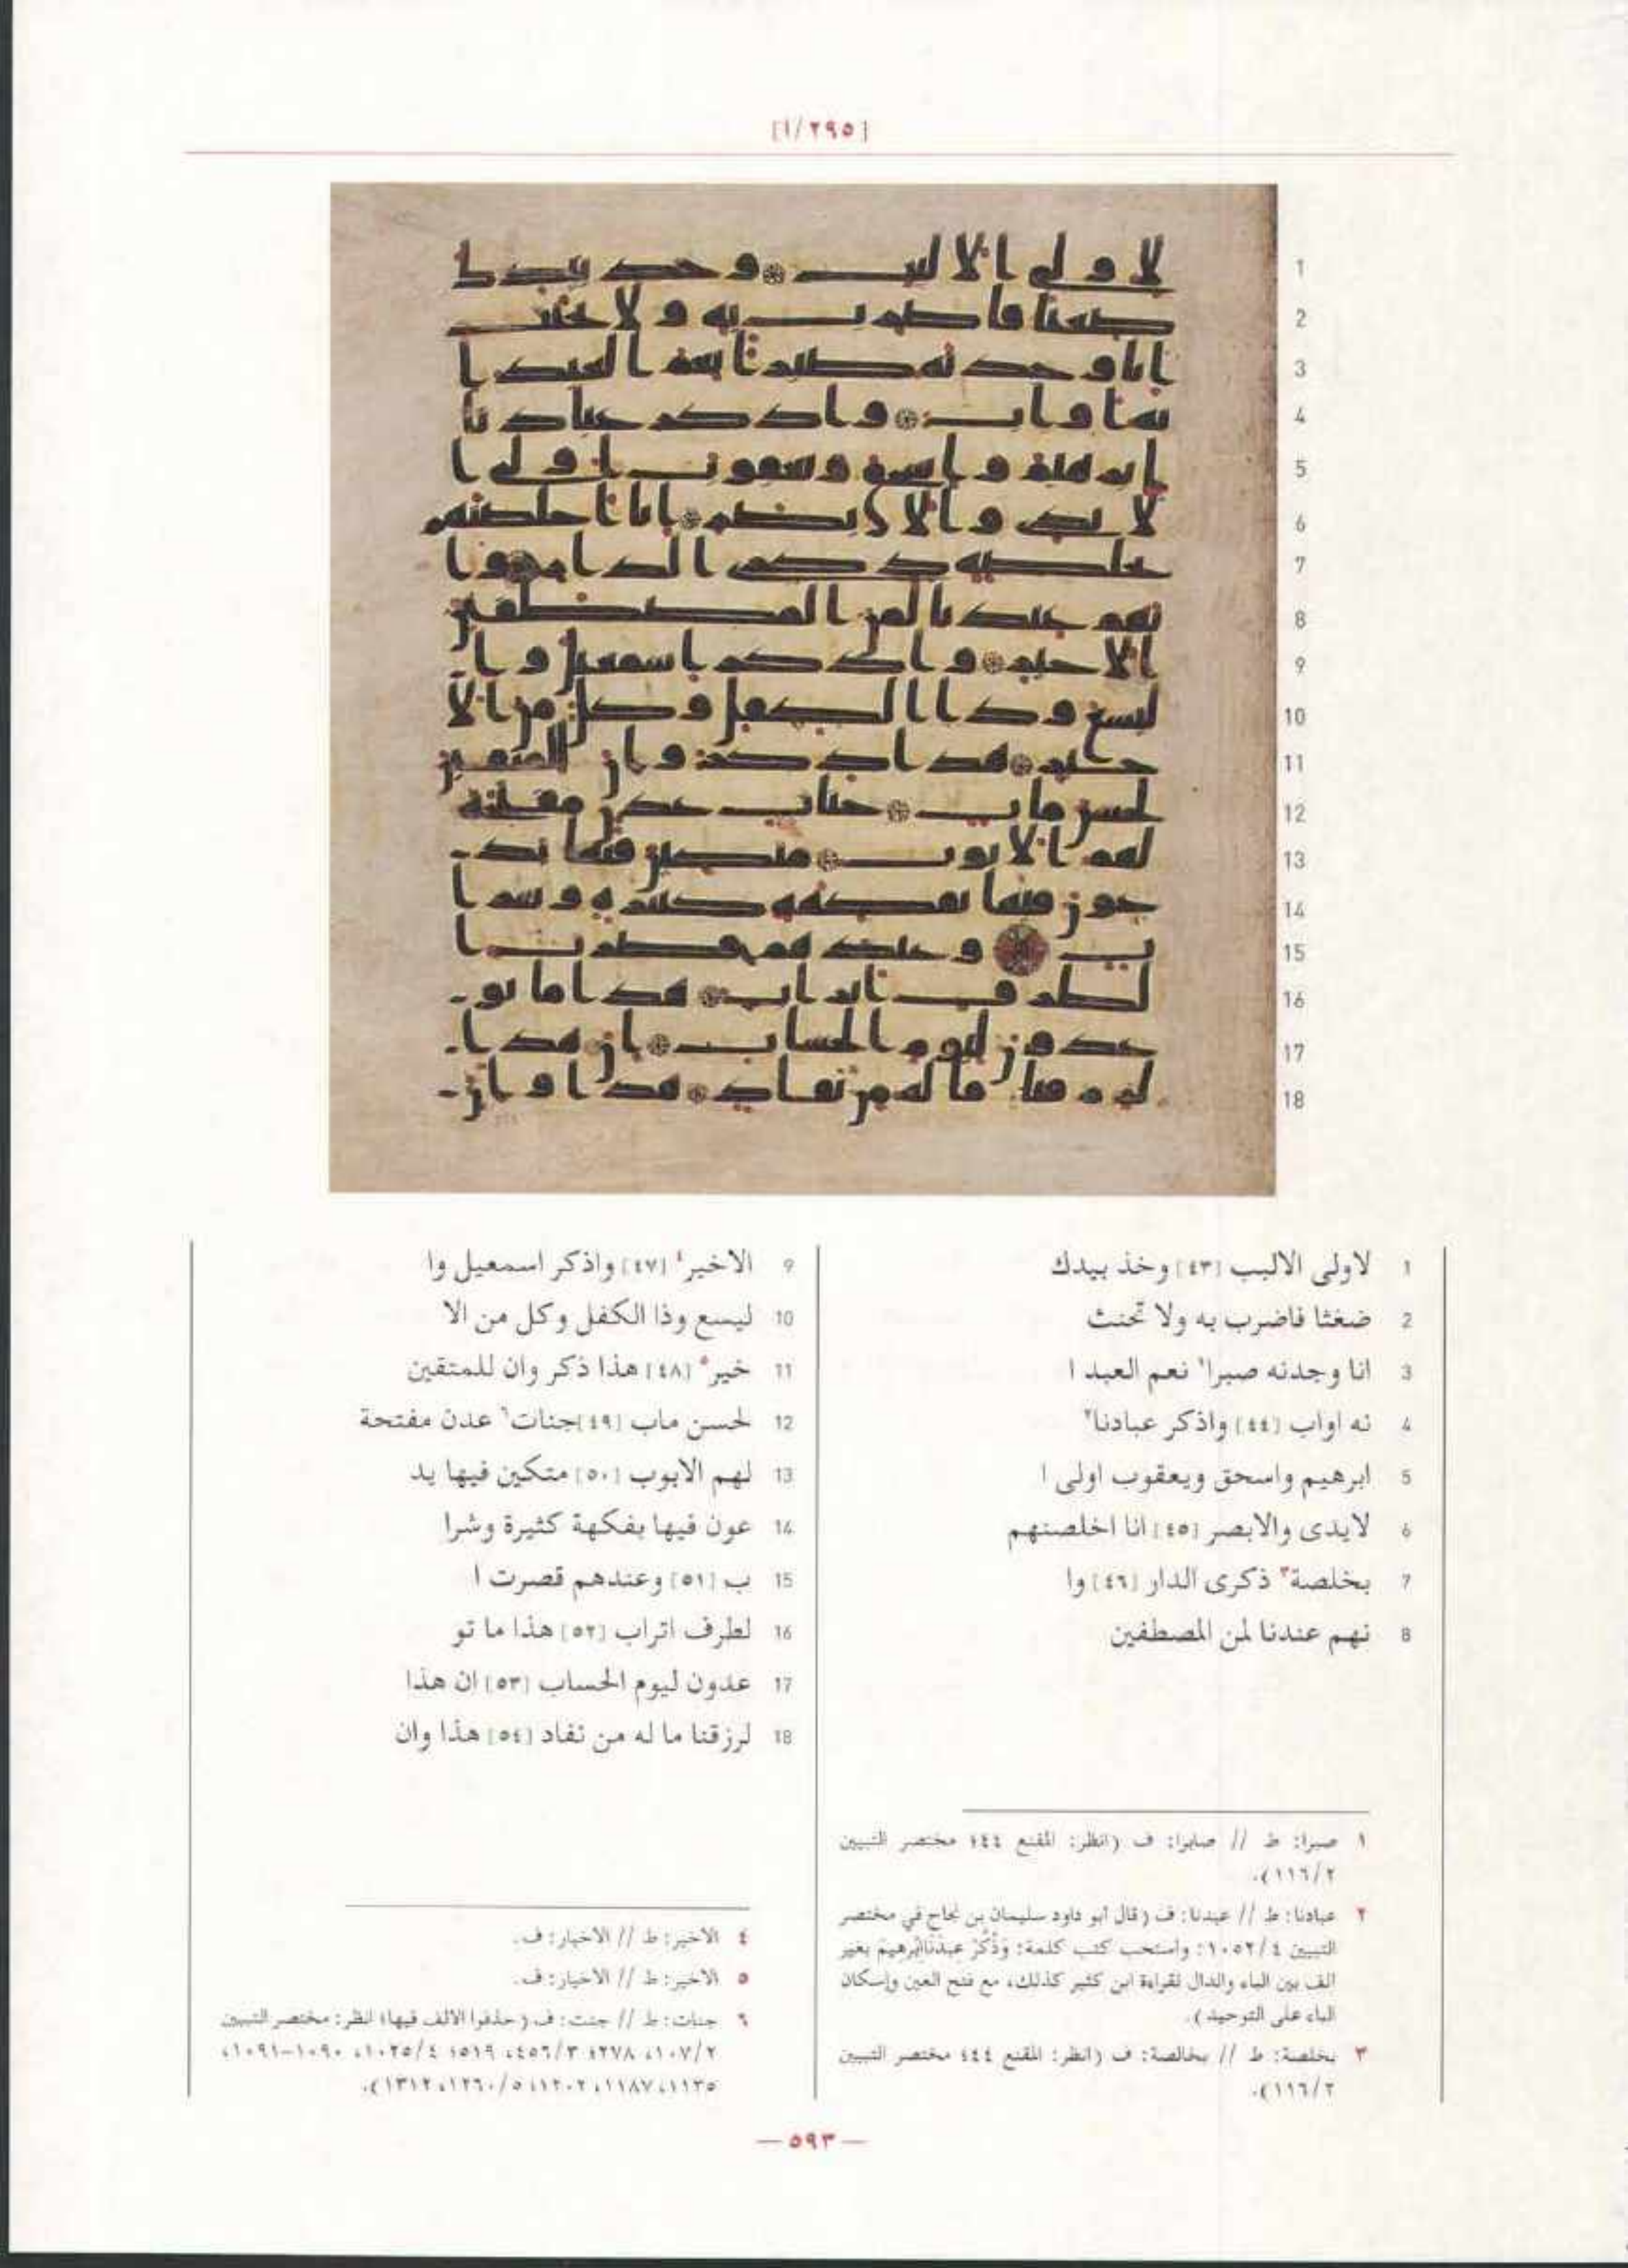 [٢٩٥/أ]
1 لاولى الالبب [٤٣] وخذ بيدك
2 ضغثا فاضرب به ولا تحنث
3 انا وجدنه صبرا١ نعم العبد ا
4 نه اواب [٤٤] واذكر عبادنا٢
5 ابرهيم واسحق ويعقوب اولى ا
6 لايدى والابصر [٤٥] انا اخلصنهم
7 بخلصة٣ ذكرى الدار [٤٦] وا
8 نهم عندنا لمن المصطفين
9 الاخير٤ [٤٧] واذكر اسمعيل وا
10 ليسع وذا الكفل وكل من الا
11 خير٥ [٤٨] هذا ذكر وان للمتقين
12 لحسن ماب [٤٩] جنات٦ عدن مفتحة
13 لهم الابوب [٥٠] متكين فيها يد
14 عون فيها بفكهة كثيرة وشرا
15 ب [٥١] وعندهم قصرت ا
16 لطرف اتراب [٥٢] هذا ما تو
17 عدون ليوم الحساب [٥٣] ان هذا
18 لرزقنا ما له من نفاد [٥٤] هذا وان
١ صبرا: ط // صابرا: ف (انظر: المقنع ٤٤؛ مختصر التبيين
٢/١١٦).
٢ عبادنا: ط // عبدنا: ف (قال أبو داود سليمان بن نجاح في مختصر
التبيين ٤/١٠٥٢: واستحب كتب كلمة: وَذْكُرْ عبدنا إبرهيم بغير
الف بين الباء والدال لقراءة ابن كثير كذلك، مع فتح العين وإسكان
الباء على التوحيد).
٣ بخلصة: ط // بخالصة: ف (انظر: المقنع ٤٤؛ مختصر التبيين
٢/١١٦).
٤ الاخير: ط // الاخيار: ف.
٥ الاخير: ط // الاخيار: ف.
٦ جنات: ط // جنت: ف (حذفوا الالف فيها؛ انظر: مختصر التبيين
٢/١٠٧، ٢٧٨؛ ٣/٤٥٦، ٥١٩؛ ٤/١٠٢٥، ١٠٩٠-١٠٩١،
١١٣٥، ١١٨٧، ١٢٠٢؛ ٥/١٢٦٠، ١٣١٢).
— ٥٩٣ —